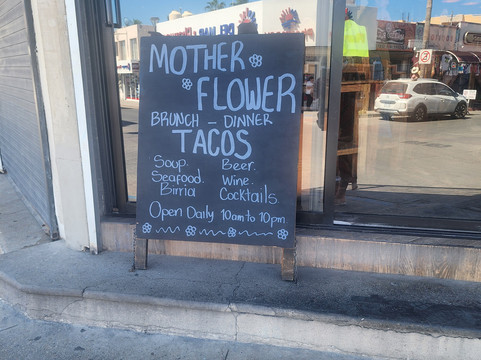 MOTHER
FLOWER
BRUNCH - DINNER
TACOS
Soup. Beer.
Seafood. Wine.
Birria Cocktails.
Open Daily 10am to 10pm.